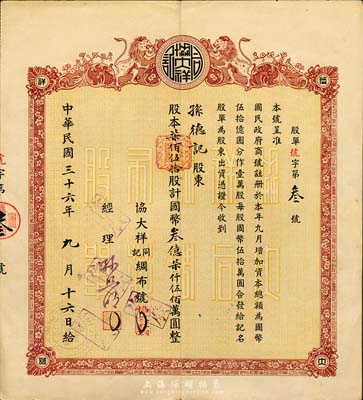 股單號字第叁號
本號呈准
國民政府商號註册於本年九月增加資本總額為國幣
伍拾億圓分作壹萬股每股國幣伍拾萬圓合發給記名
股單為股東出資憑證今收到
孫德記股東
股本柒佰伍拾股計國幣叁億柒仟伍佰萬圓整
協大祥同記綢布號
經理
中華民國三十六年九月十六日給
祥
協
大
號
字第
號
上海陽明拍賣